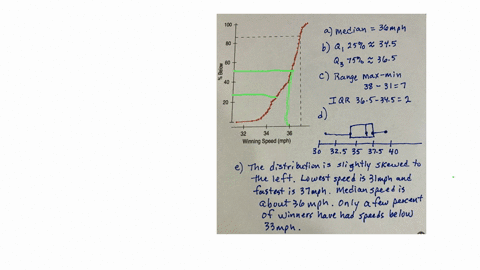 100
80
60
40
20
% Below
32 34 36
Winning Speed (mph)
a) median = 36mph
b) Q1 25% ≈ 34.5
Q3 75% ≈ 36.5
c) Range max-min
38 - 31 = 7
IQR 36.5-34.5 = 2
d)
30 32.5 35 37.5 40
e) The distribution is slightly skewed to
the left. Lowest speed is 31mph and
fastest is 37mph. Median speed is
about 36 mph. Only a few percent
of winners have had speeds below
33mph.